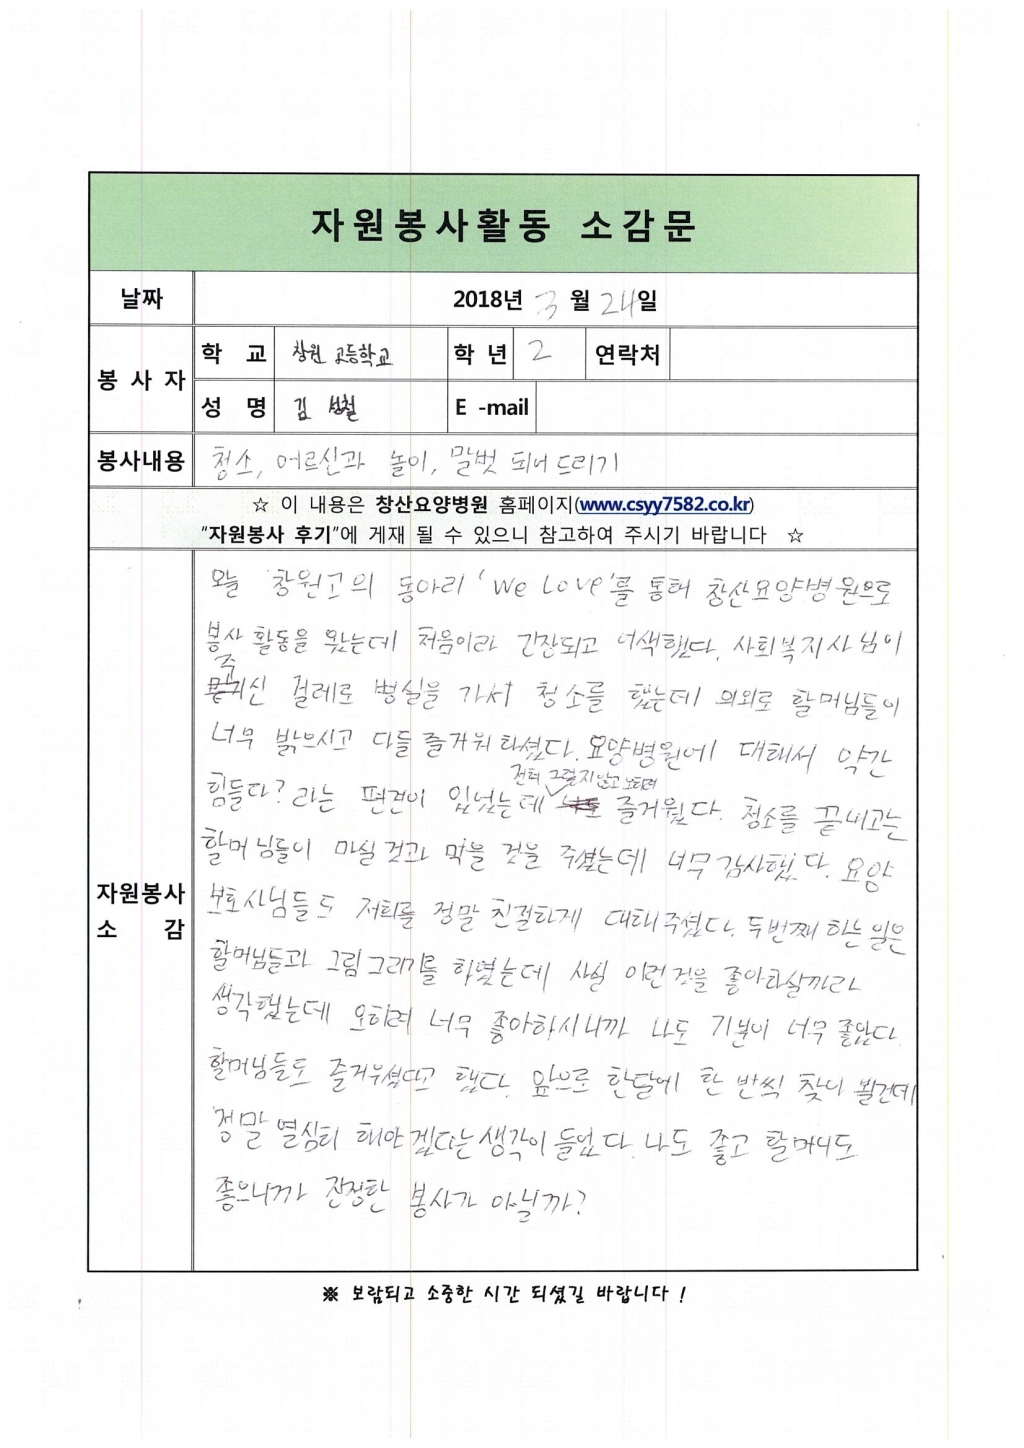 자원봉사활동 소감문
날짜 2018년 3 월 24일
봉 사 자
학 교 창원 고등학교 학 년 2 연락처
성 명 김 성철 E -mail
봉사내용 청소, 어르신과 놀이, 말벗 되어 드리기
☆ 이 내용은 창산요양병원 홈페이지(www.csyy7582.co.kr)
“자원봉사 후기”에 게재 될 수 있으니 참고하여 주시기 바랍니다 ☆
자원봉사
소 감
오늘 창원고의 동아리 ‘We Love’를 통해 창산요양병원으로
봉사 활동을 왔는데 처음이라 긴장되고 어색했다. 사회복지사님이
주신 걸레로 병실을 가서 청소를 했는데 의외로 할머님들이
너무 밝으시고 다들 즐거워 하셨다. 요양병원에 대해서 약간
힘들다? 라는 편견이 있었는데 전혀 그렇지 않고 오히려 즐거웠다. 청소를 끝내고는
할머님들이 마실 것과 먹을 것을 주셨는데 너무 감사했다. 요양
보호사님들도 저희를 정말 친절하게 대해주셨다. 두번째 하는 일은
할머님들과 그림그리기를 하였는데 사실 이런 것을 좋아하실까라
생각했는데 오히려 너무 좋아하시니까 나도 기분이 너무 좋았다.
할머님들도 즐거우셨다고 했다. 앞으로 한달에 한 번씩 찾아 뵐건데
정말 열심히 해야 겠다는 생각이 들었다. 나도 좋고 할머니도
좋으니까 진정한 봉사가 아닐까?
※ 보람되고 소중한 시간 되셨길 바랍니다 !